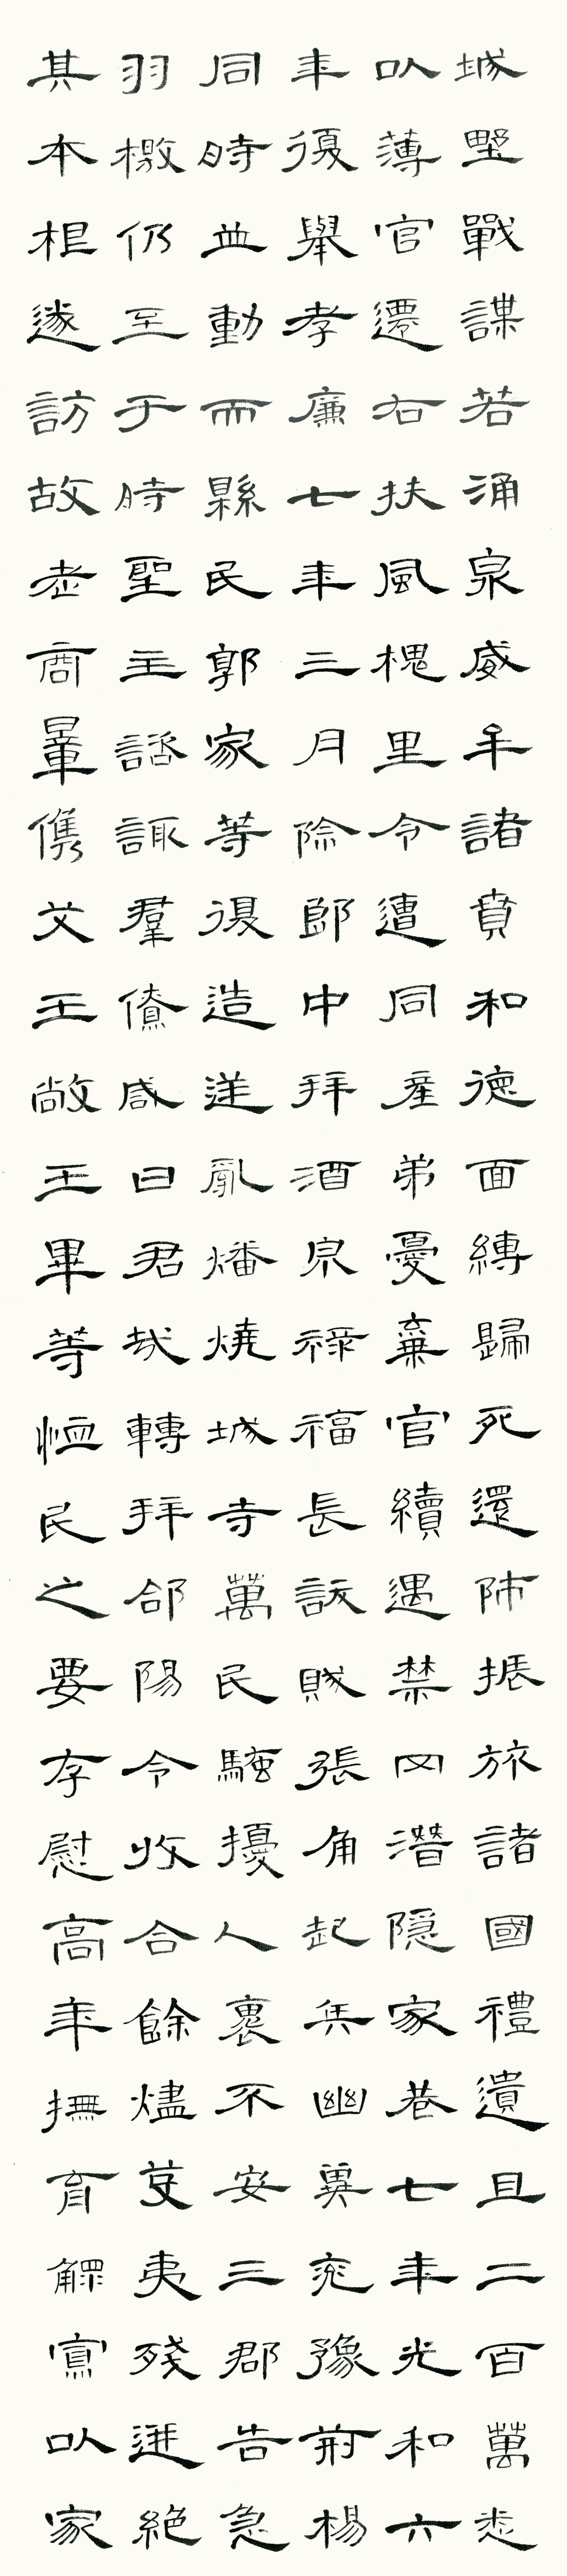 城野戰謀若涌泉威牟諸賁和德面縛歸死還師振旅諸國禮遺且二百萬悉
以薄官遷右扶風槐里令遭同產弟憂棄官續遇禁冈潛隱家巷七年光和六
年復舉孝廉七年三月除郎中拜酒泉祿福長訞賊張角起兵幽冀兗豫荊楊
同時並動而縣民郭家等復造逆亂燔燒城寺萬民騷擾人褢不安三郡告急
羽檄仍至于時聖主諮諏羣僚咸曰君哉轉拜郃陽令收合餘燼芟夷殘迸絕
其本根遂訪故老商量儁艾王敞王畢等恤民之要存慰高年撫育鰥寡以家